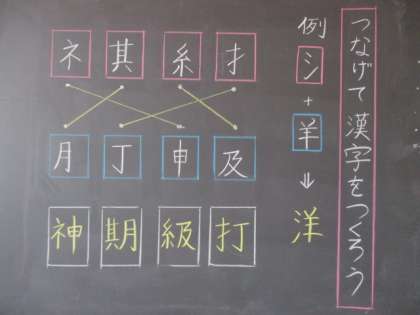 つなげて漢字をつくろう
例
氵+羊⇓洋
扌 糸 其 ネ
及 申 丁 月
打 級 期 神